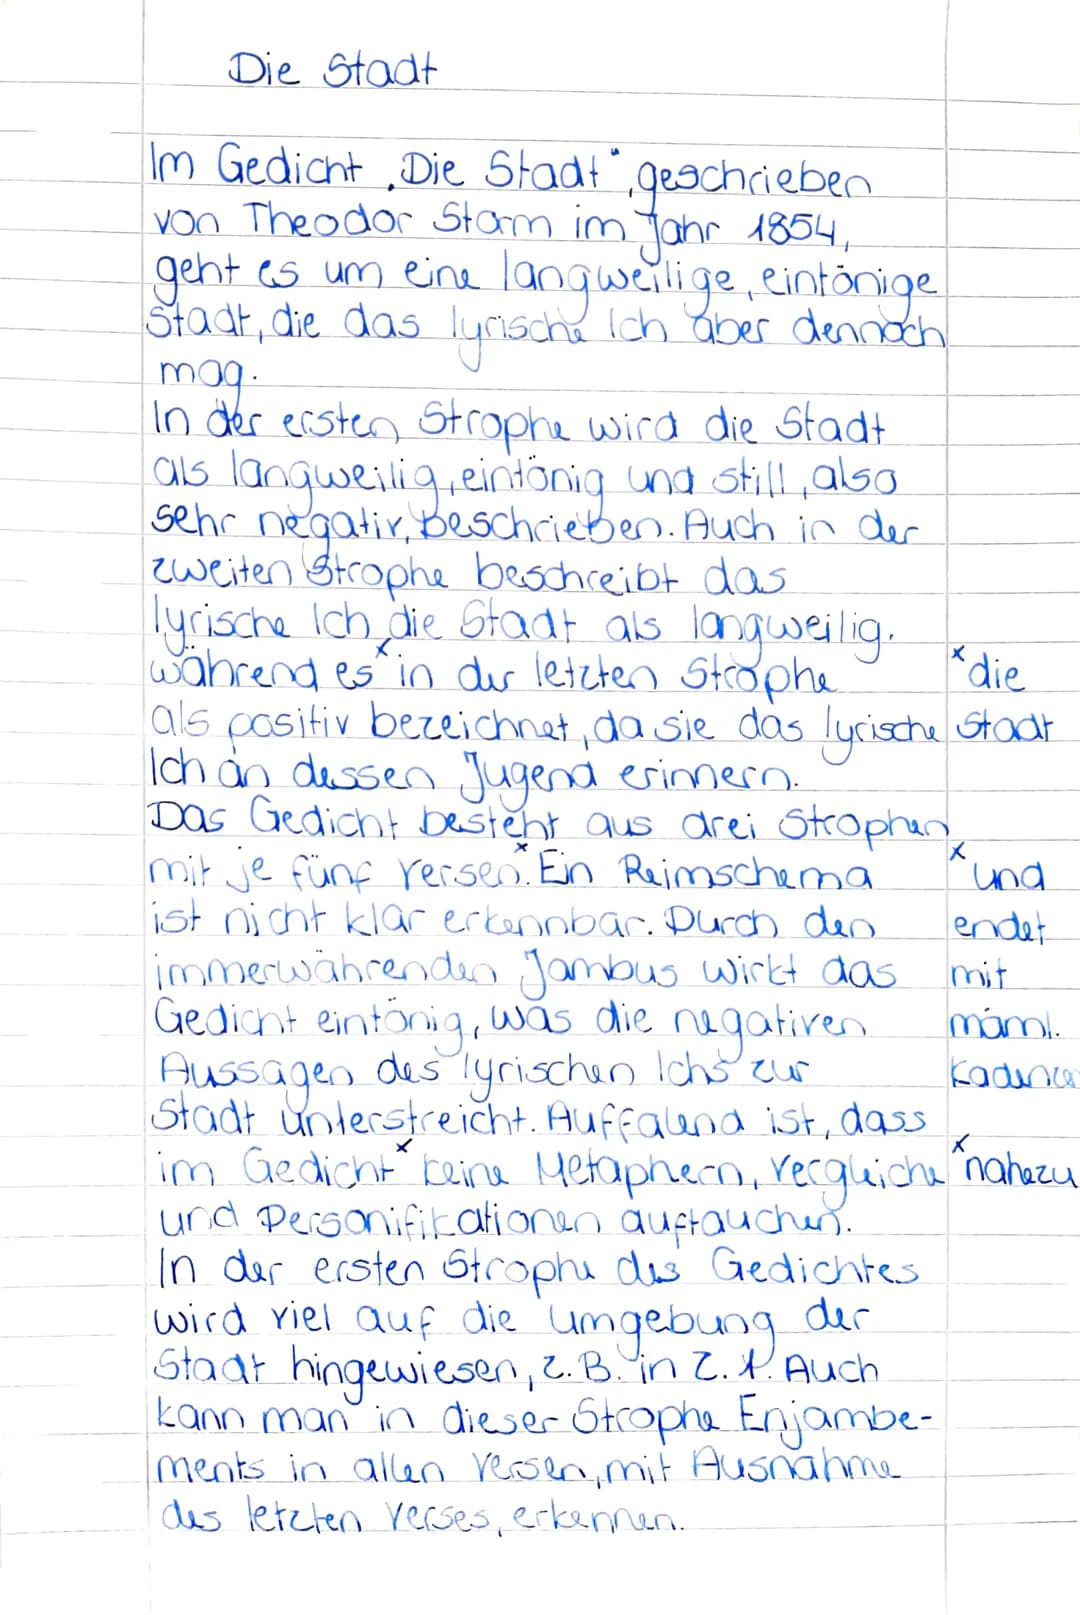 Die Stadt
Im Gedicht „Die Stadt“, geschrieben
von Theodor Storm im Jahr 1854,
geht es um eine langweilige, eintönige
Stadt, die das lyrische Ich aber dennoch
mag.
In der ersten Strophe wird die Stadt
als langweilig, eintönig und still, also
sehr negativ, beschrieben. Auch in der
zweiten Strophe beschreibt das
lyrische Ich die Stadt als langweilig.
während es x in der letzten Strophe
x die
als positiv bezeichnet, da sie das lyrische
Stadt
Ich an dessen Jugend erinnern.
Das Gedicht besteht aus drei Strophen
mit je fünf Versen x. Ein Reimschema
x und
ist nicht klar erkennbar. Durch den
endet
immerwährenden Jambus wirkt das
mit
Gedicht eintönig, was die negativen
männl.
Aussagen des lyrischen Ichs zur
Kadence
Stadt unterstreicht. Auffalend ist, dass
im Gedicht x keine Metaphern, Vergleiche
x nahezu
und Personifikationen auftauchen.
In der ersten Strophe des Gedichtes
wird viel auf die Umgebung der
Stadt hingewiesen, z. B. in Z. 1. Auch
kann man in dieser Strophe Enjambe-
ments in allen Versen, mit Ausnahme
des letzten Verses, erkennen.